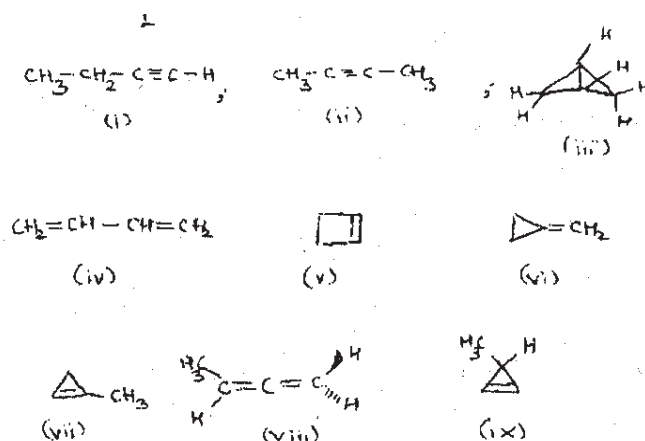 1
CH3-CH2-C≡C-H,
(i)
CH3-C≡C-CH3
(ii)
;
H
H
H
H
H
H
(iii)
CH2=CH-CH=CH2
(iv)
(v)
=CH2
(vi)
CH3
(vii)
H3C
H
C=C=C
H
H
(viii)
H3C H
(ix)